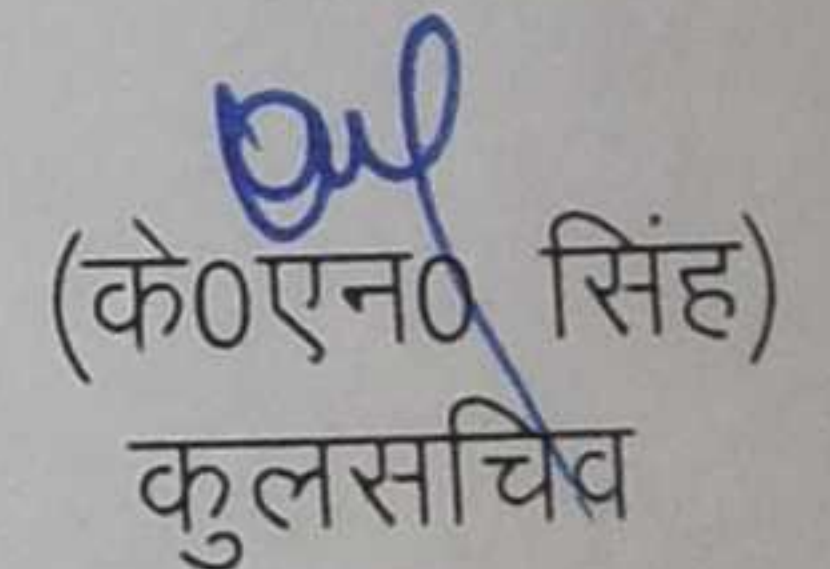 (के0एन0 सिंह)
कुलसचिव